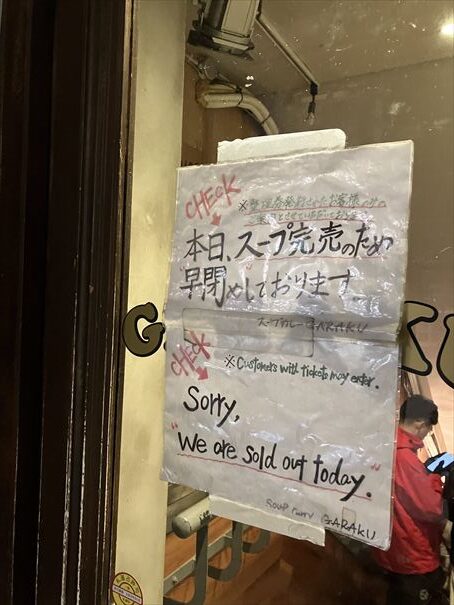 CHECK
※整理券発行されたお客様のみの
ご案内とさせていただいております
本日、スープ完売のため
早閉めしております
スープカレー GARAKU
CHECK
※Customers with tickets may enter.
Sorry,
"We are sold out today."
soup curry GARAKU